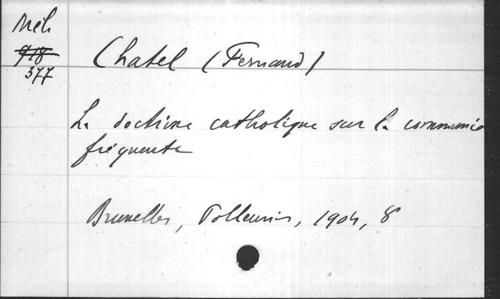 Mél.
918
377
Chatel (Fernand)
La doctrine catholique sur la communio
fréquente
Bruxelles, Polleunis, 1904, 8